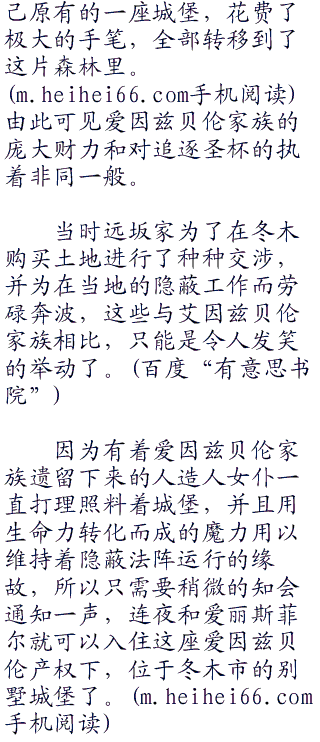 己原有的一座城堡，花费了
极大的手笔，全部转移到了
这片森林里。
(m.heihei66.com手机阅读)
由此可见爱因兹贝伦家族的
庞大财力和对追逐圣杯的执
着非同一般。
当时远坂家为了在冬木
购买土地进行了种种交涉，
并为在当地的隐蔽工作而劳
碌奔波，这些与艾因兹贝伦
家族相比，只能是令人发笑
的举动了。(百度“有意思书
院”)
因为有着爱因兹贝伦家
族遗留下来的人造人女仆一
直打理照料着城堡，并且用
生命力转化而成的魔力用以
维持着隐蔽法阵运行的缘
故，所以只需要稍微的知会
通知一声，连夜和爱丽斯菲
尔就可以入住这座爱因兹贝
伦产权下，位于冬木市的别
墅城堡了。(m.heihei66.com
手机阅读)